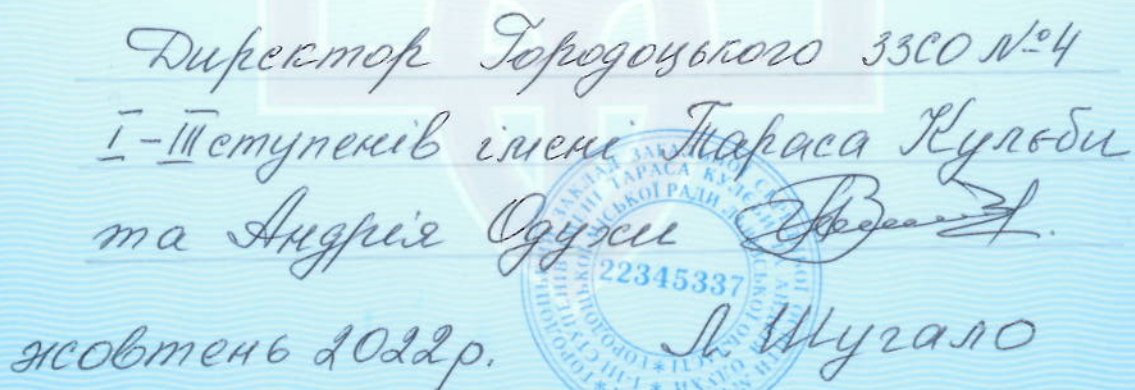 Директор Городоцького ЗЗСО №4
І-ІІІ ступенів імені Тараса Кулєби
та Андрія Одухи
22345337
жовтень 2022р. Л. Шугало